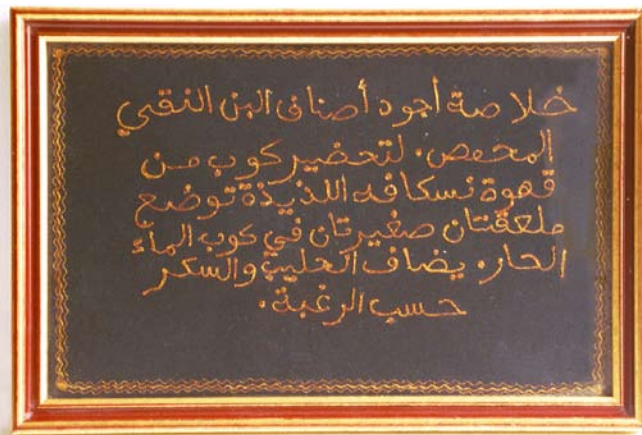 خلاصة أجود أصناف البن النقي
المحمص. لتحضير كوب من
قهوة نسكافه اللذيذة توضع
ملعقتان صغيرتان في كوب الماء
الحار. يضاف الحليب والسكر
حسب الرغبة.